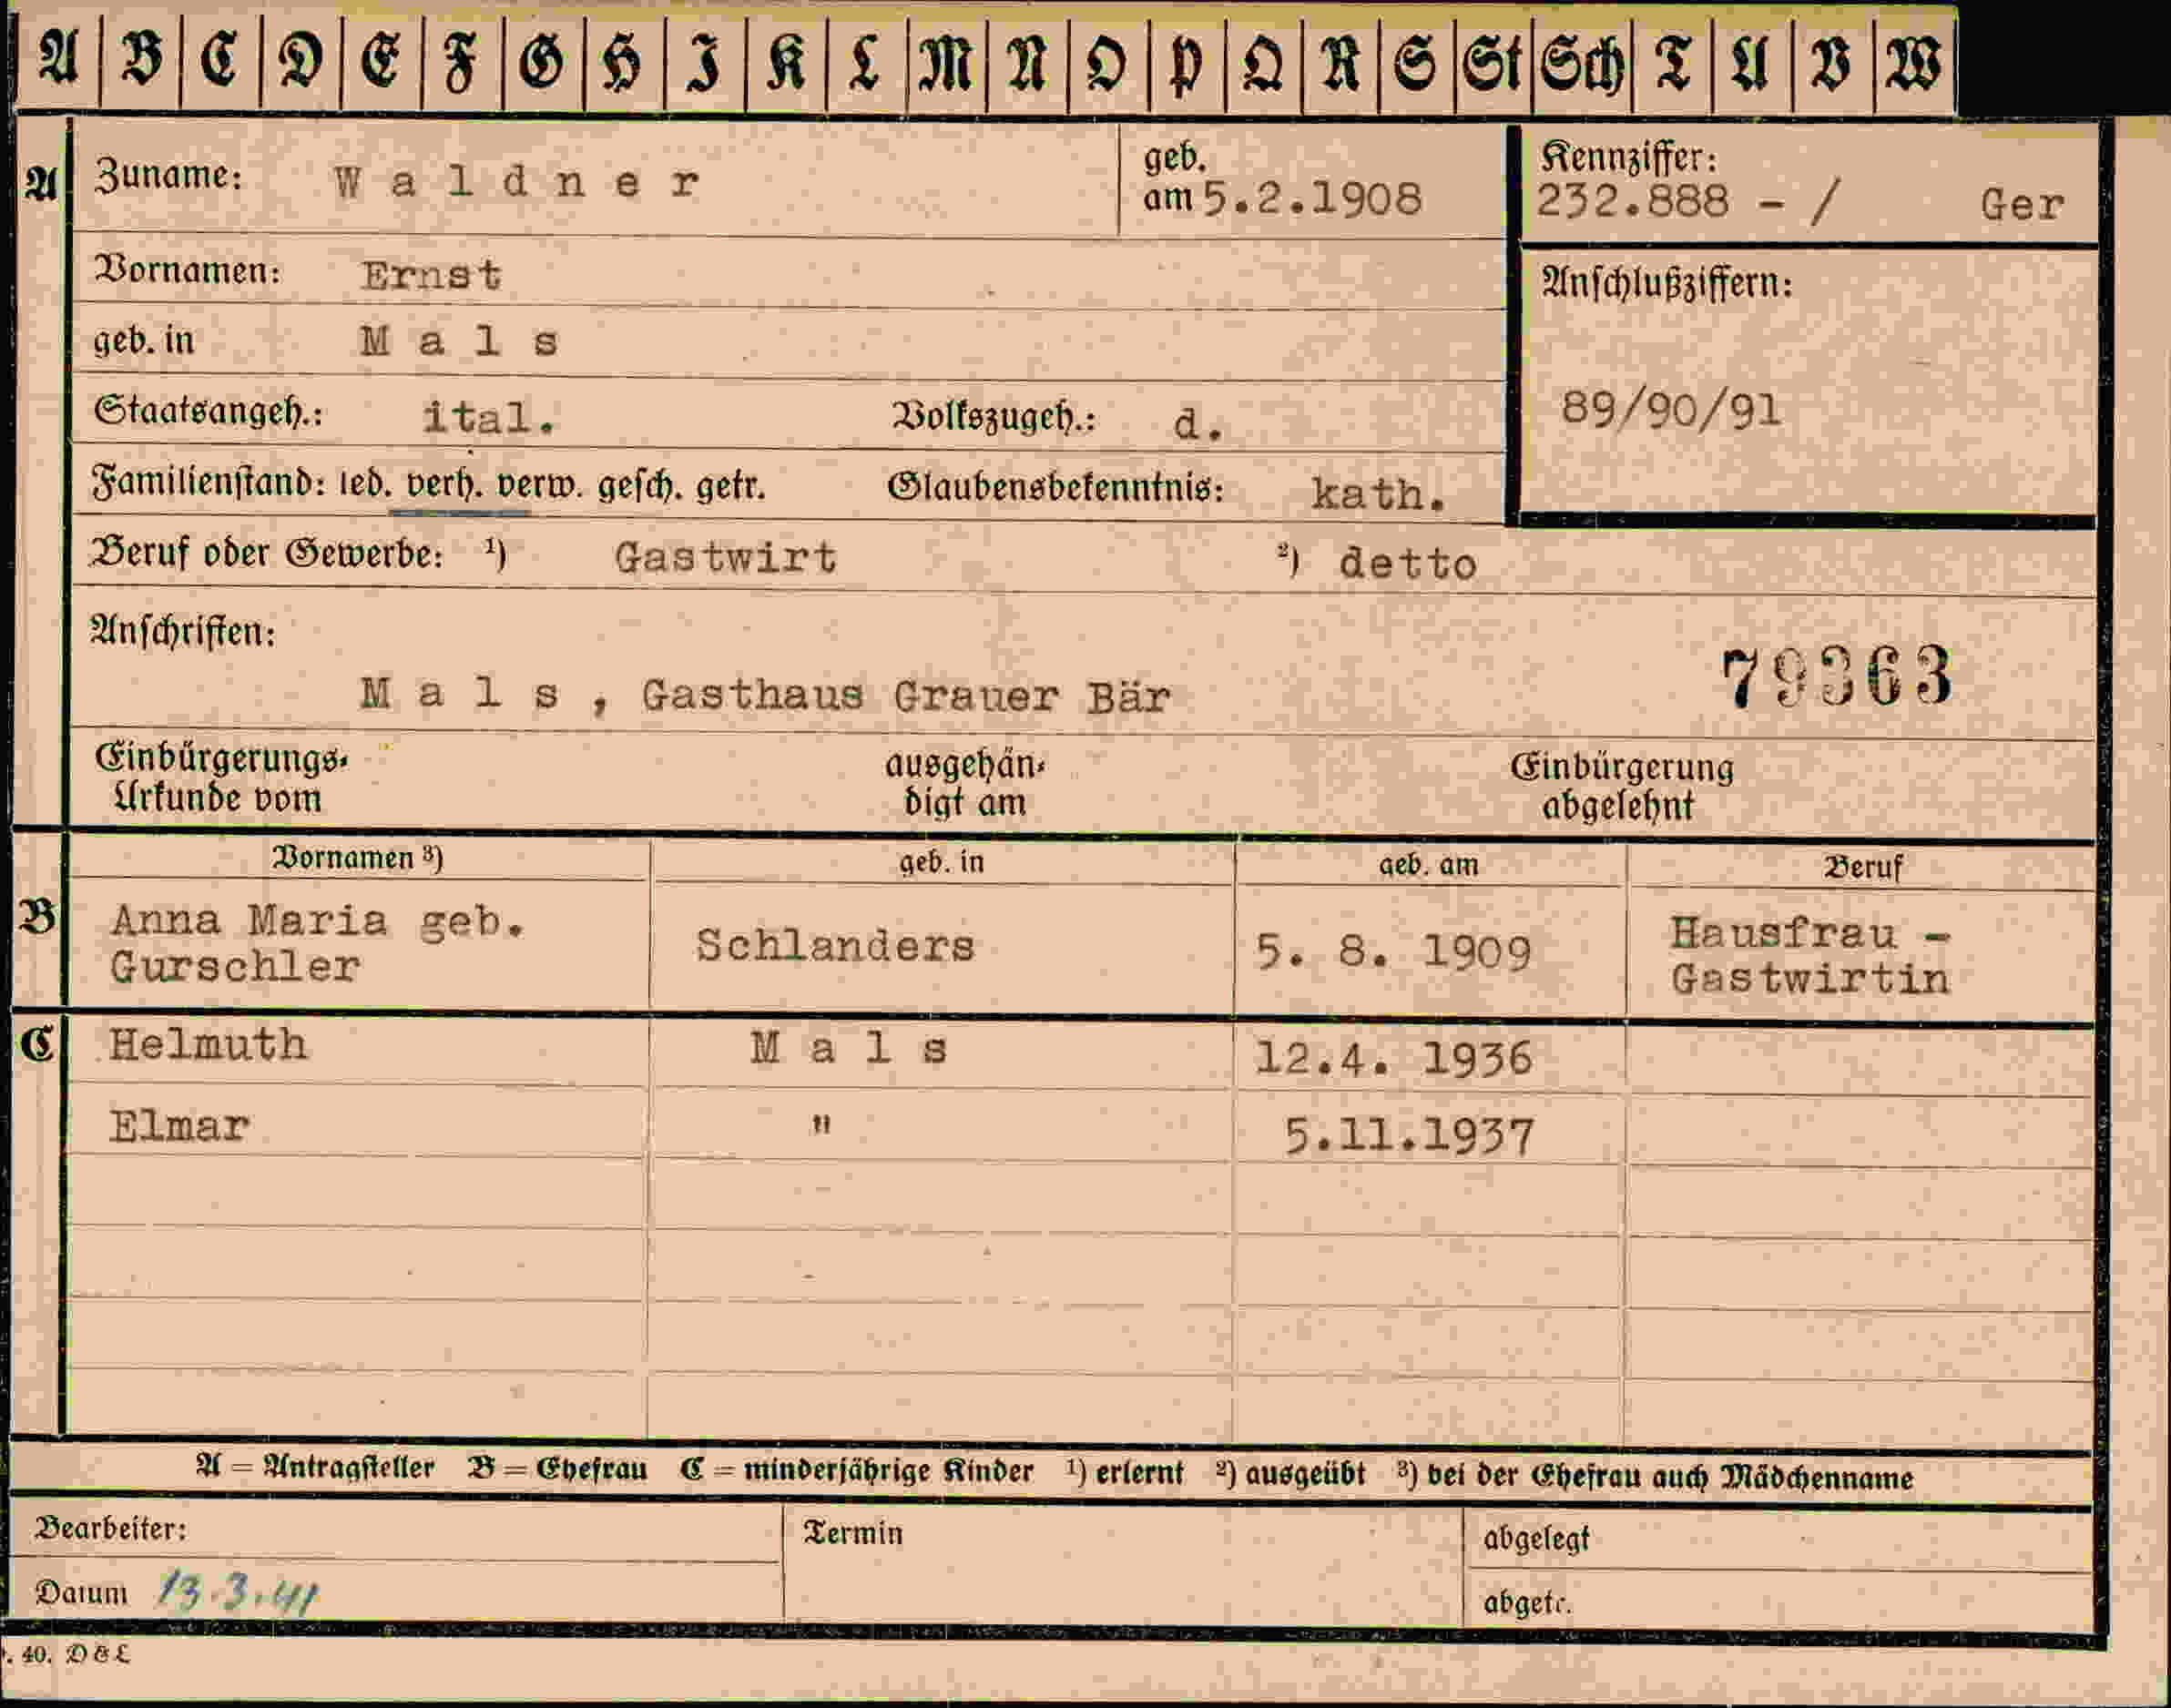 A B C D E F G H I K L M N O P Q R S St Sch T U V W
A Zuname: Waldner geb. am 5.2.1908 Kennziffer: 232.888 - / Ger
Vornamen: Ernst Anschlußziffern:
geb. in Mals
Staatsangeh.: ital. Volkszugeh.: d. 89/90/91
Familienstand: led. verh. verw. gesch. getr. Glaubensbekenntnis: kath.
Beruf oder Gewerbe: ¹) Gastwirt ²) detto
Anschriften:
Mals, Gasthaus Grauer Bär 79363
Einbürgerungs- ausgehän- Einbürgerung
Urkunde vom digt am abgelehnt
Vornamen ³) geb. in geb. am Beruf
B Anna Maria geb. Schlanders 5. 8. 1909 Hausfrau -
Gurschler Gastwirtin
C Helmuth Mals 12.4. 1936
Elmar " 5.11.1937
A = Antragsteller B = Ehefrau C = minderjährige Kinder ¹) erlernt ²) ausgeübt ³) bei der Ehefrau auch Mädchenname
Bearbeiter: Termin abgelegt
Datum 13.3.41 abgetr.
. 40. D & L